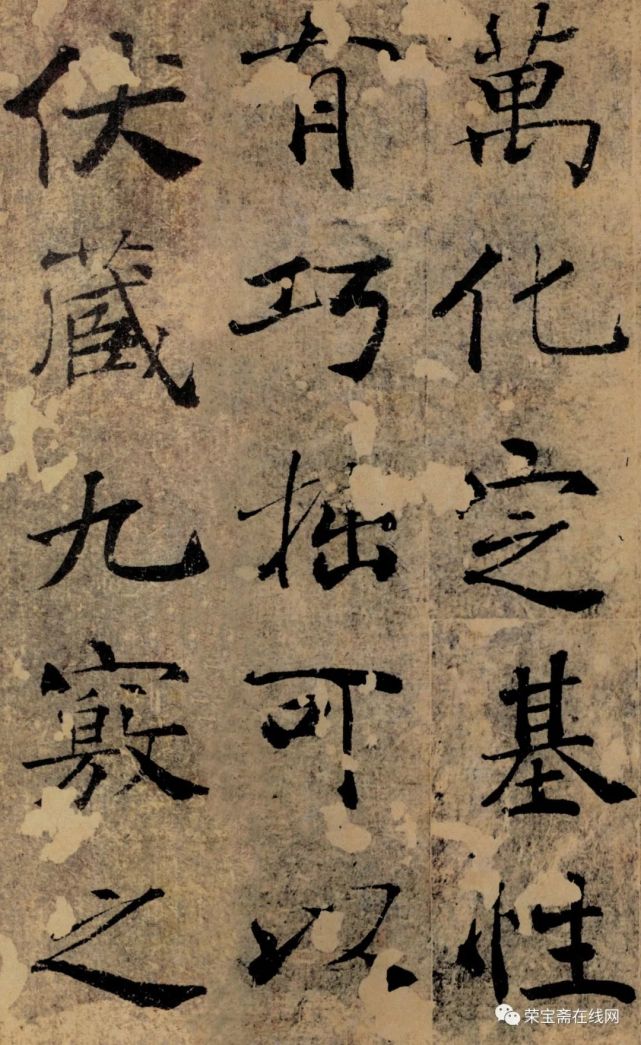 萬化定基性
有巧拙可以
伏藏九竅之
荣宝斋在线网